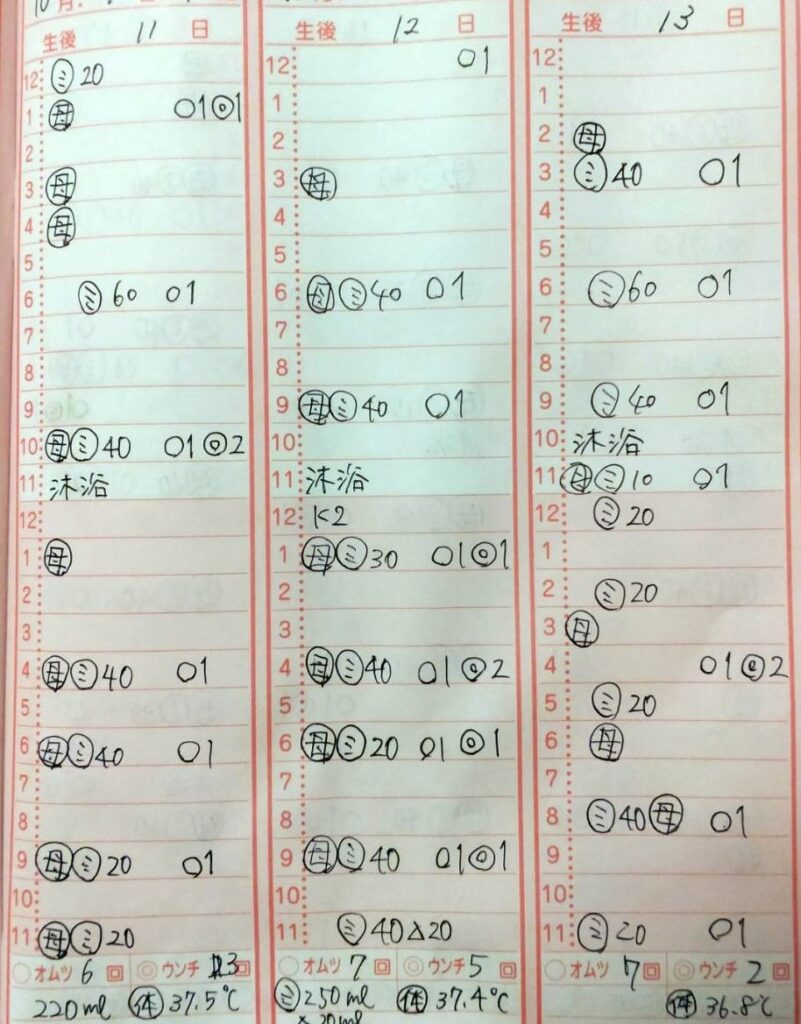 10月
生後 11 日
12 ㋯20
1 ㊊ ○1◎1
2
3 母
4 母
5
6 ㋯60 ○1
7
8
9
10 母㋯40 ○1◎2
11 沐浴
12
1 母
2
3
4 母㋯40 ○1
5
6 母㋯40 ○1
7
8
9 母㋯20 ○1
10
11 母㋯20
○オムツ 6 回 ◎ウンチ 3 回
220ml 体37.5℃
生後 12 日
12 ○1
1
2
3 母
4
5
6 母㋯40 ○1
7
8
9 母㋯40 ○1
10
11 沐浴
12 K2
1 母㋯30 ○1◎1
2
3
4 母㋯40 ○1◎2
5
6 母㋯20 ○1◎1
7
8
9 母㋯40 ○1◎1
10
11 ㋯40△20
○オムツ 7 回 ◎ウンチ 5 回
㋯250ml 体37.4℃
20ml
生後 13 日
12
1
2 母
3 ㋯40 ○1
4
5
6 ㋯60 ○1
7
8
9 ㋯40 ○1
10 沐浴
11 母㋯10 ○1
12 ㋯20
1
2 ㋯20
3 母
4 ○1◎2
5 ㋯20
6 母
7
8 ㋯40母 ○1
9
10
11 ㋯20 ○1
○オムツ 7 回 ◎ウンチ 2 回
体36.8℃